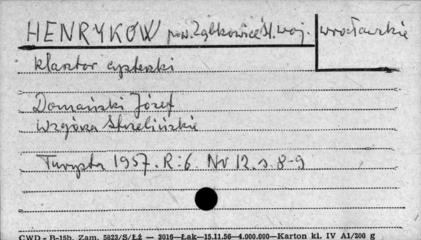 HENRYKÓW pow. Ząbkowice Śl. woj. wrocławskie
klasztor cysterski
Domański Józef
Wzgórza Strzelińskie
Turysta 1957. R:6. Nr 12. s. 8-9
CWD - B-15b. Zam. 5823/S/Łż — 3016—Łak—15.11.56—4.000.000—Karton kl. IV A1/200 g